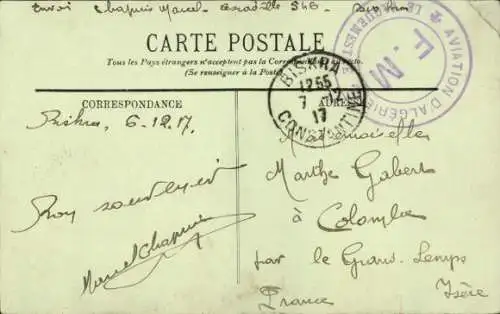 Envoi Chapuis Marcel - Escadrille 546 -
CARTE POSTALE
Tous les Pays étrangers n'acceptent pas la Correspondance au recto.
(Se renseigner à la Poste)
AVIATION D'ALGÉRIE
F. M
BISKRA
12 55
7 - 12
17
CONSTANTINE
CORRESPONDANCE
ADRESSE
Biskra, 6-12.17.
Mademoiselle
Marthe Gabert
à Colombe
par le Grand-Lemps
Isère
France
Bon souvenir
Marcel Chapuis